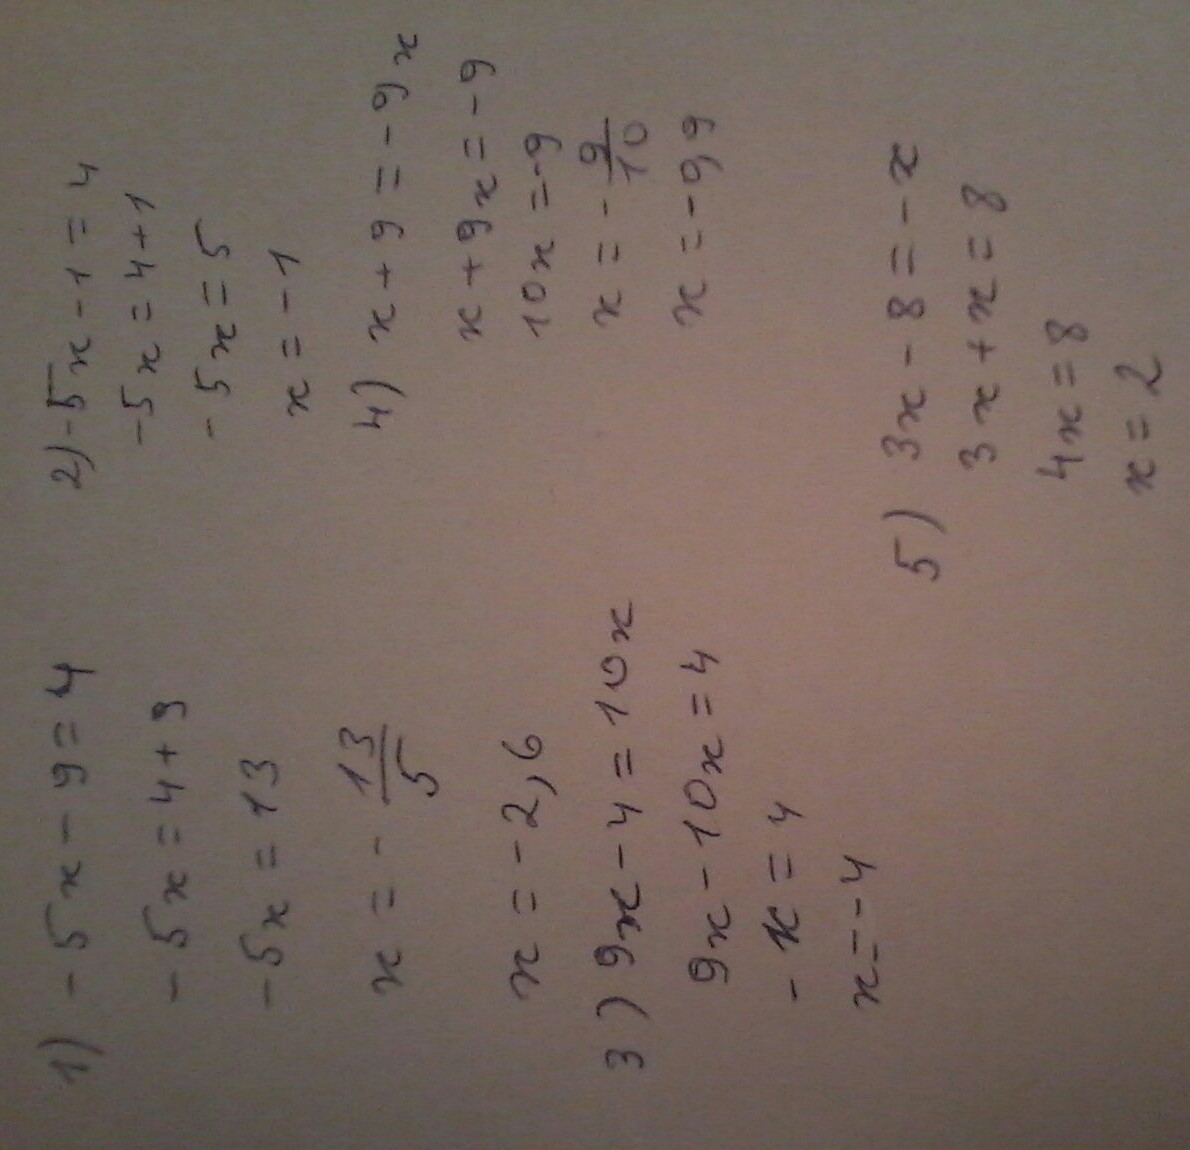 1) -5x - 9 = 4
-5x = 4 + 9
-5x = 13
x = - 13/5
x = -2,6
2) -5x - 1 = 4
-5x = 4 + 1
-5x = 5
x = -1
3) 9x - 4 = 10x
9x - 10x = 4
-x = 4
x = -4
4) x + 9 = -9x
x + 9x = -9
10x = -9
x = - 9/10
x = -9,9
5) 3x - 8 = -x
3x + x = 8
4x = 8
x = 2